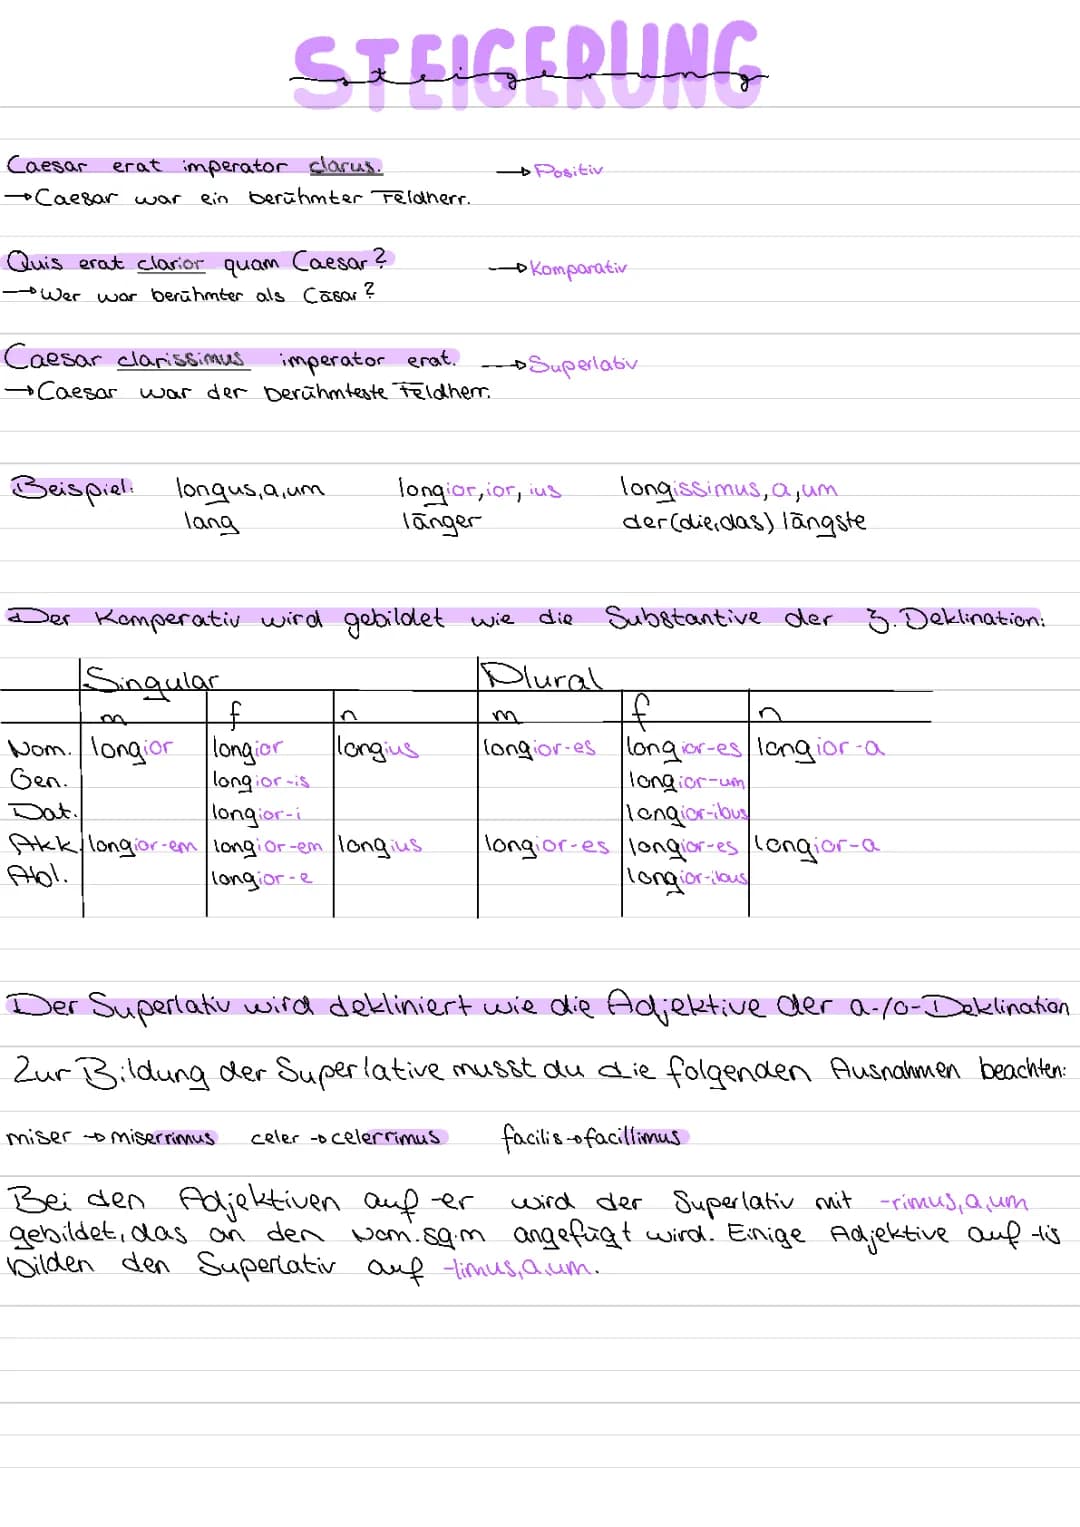 STEIGERUNG
steigerung
Caesar erat imperator clarus. → Positiv
→ Caesar war ein berühmter Feldherr.
Quis erat clarior quam Caesar? → Komparativ
→ Wer war berühmter als Cäsar?
Caesar clarissimus imperator erat. → Superlativ
→ Caesar war der berühmteste Feldherr.
Beispiel: longus,a,um longior,ior,ius longissimus,a,um
lang länger der(die,das) längste
Der Komperativ wird gebildet wie die Substantive der 3. Deklination:
Singular Plural
m f n m f n
Nom. longior longior longius longior-es longior-es longior-a
Gen. longior-is longior-um
Dat. longior-i longior-ibus
Akk. longior-em longior-em longius longior-es longior-es longior-a
Abl. longior-e longior-ibus
Der Superlativ wird dekliniert wie die Adjektive der a-/o-Deklination
Zur Bildung der Superlative musst du die folgenden Ausnahmen beachten:
miser → miserrimus celer → celerrimus facilis → facillimus
Bei den Adjektiven auf -er wird der Superlativ mit -rimus,a,um
gebildet, das an den Nom.sg.m angefügt wird. Einige Adjektive auf -lis
bilden den Superlativ auf -limus,a,um.